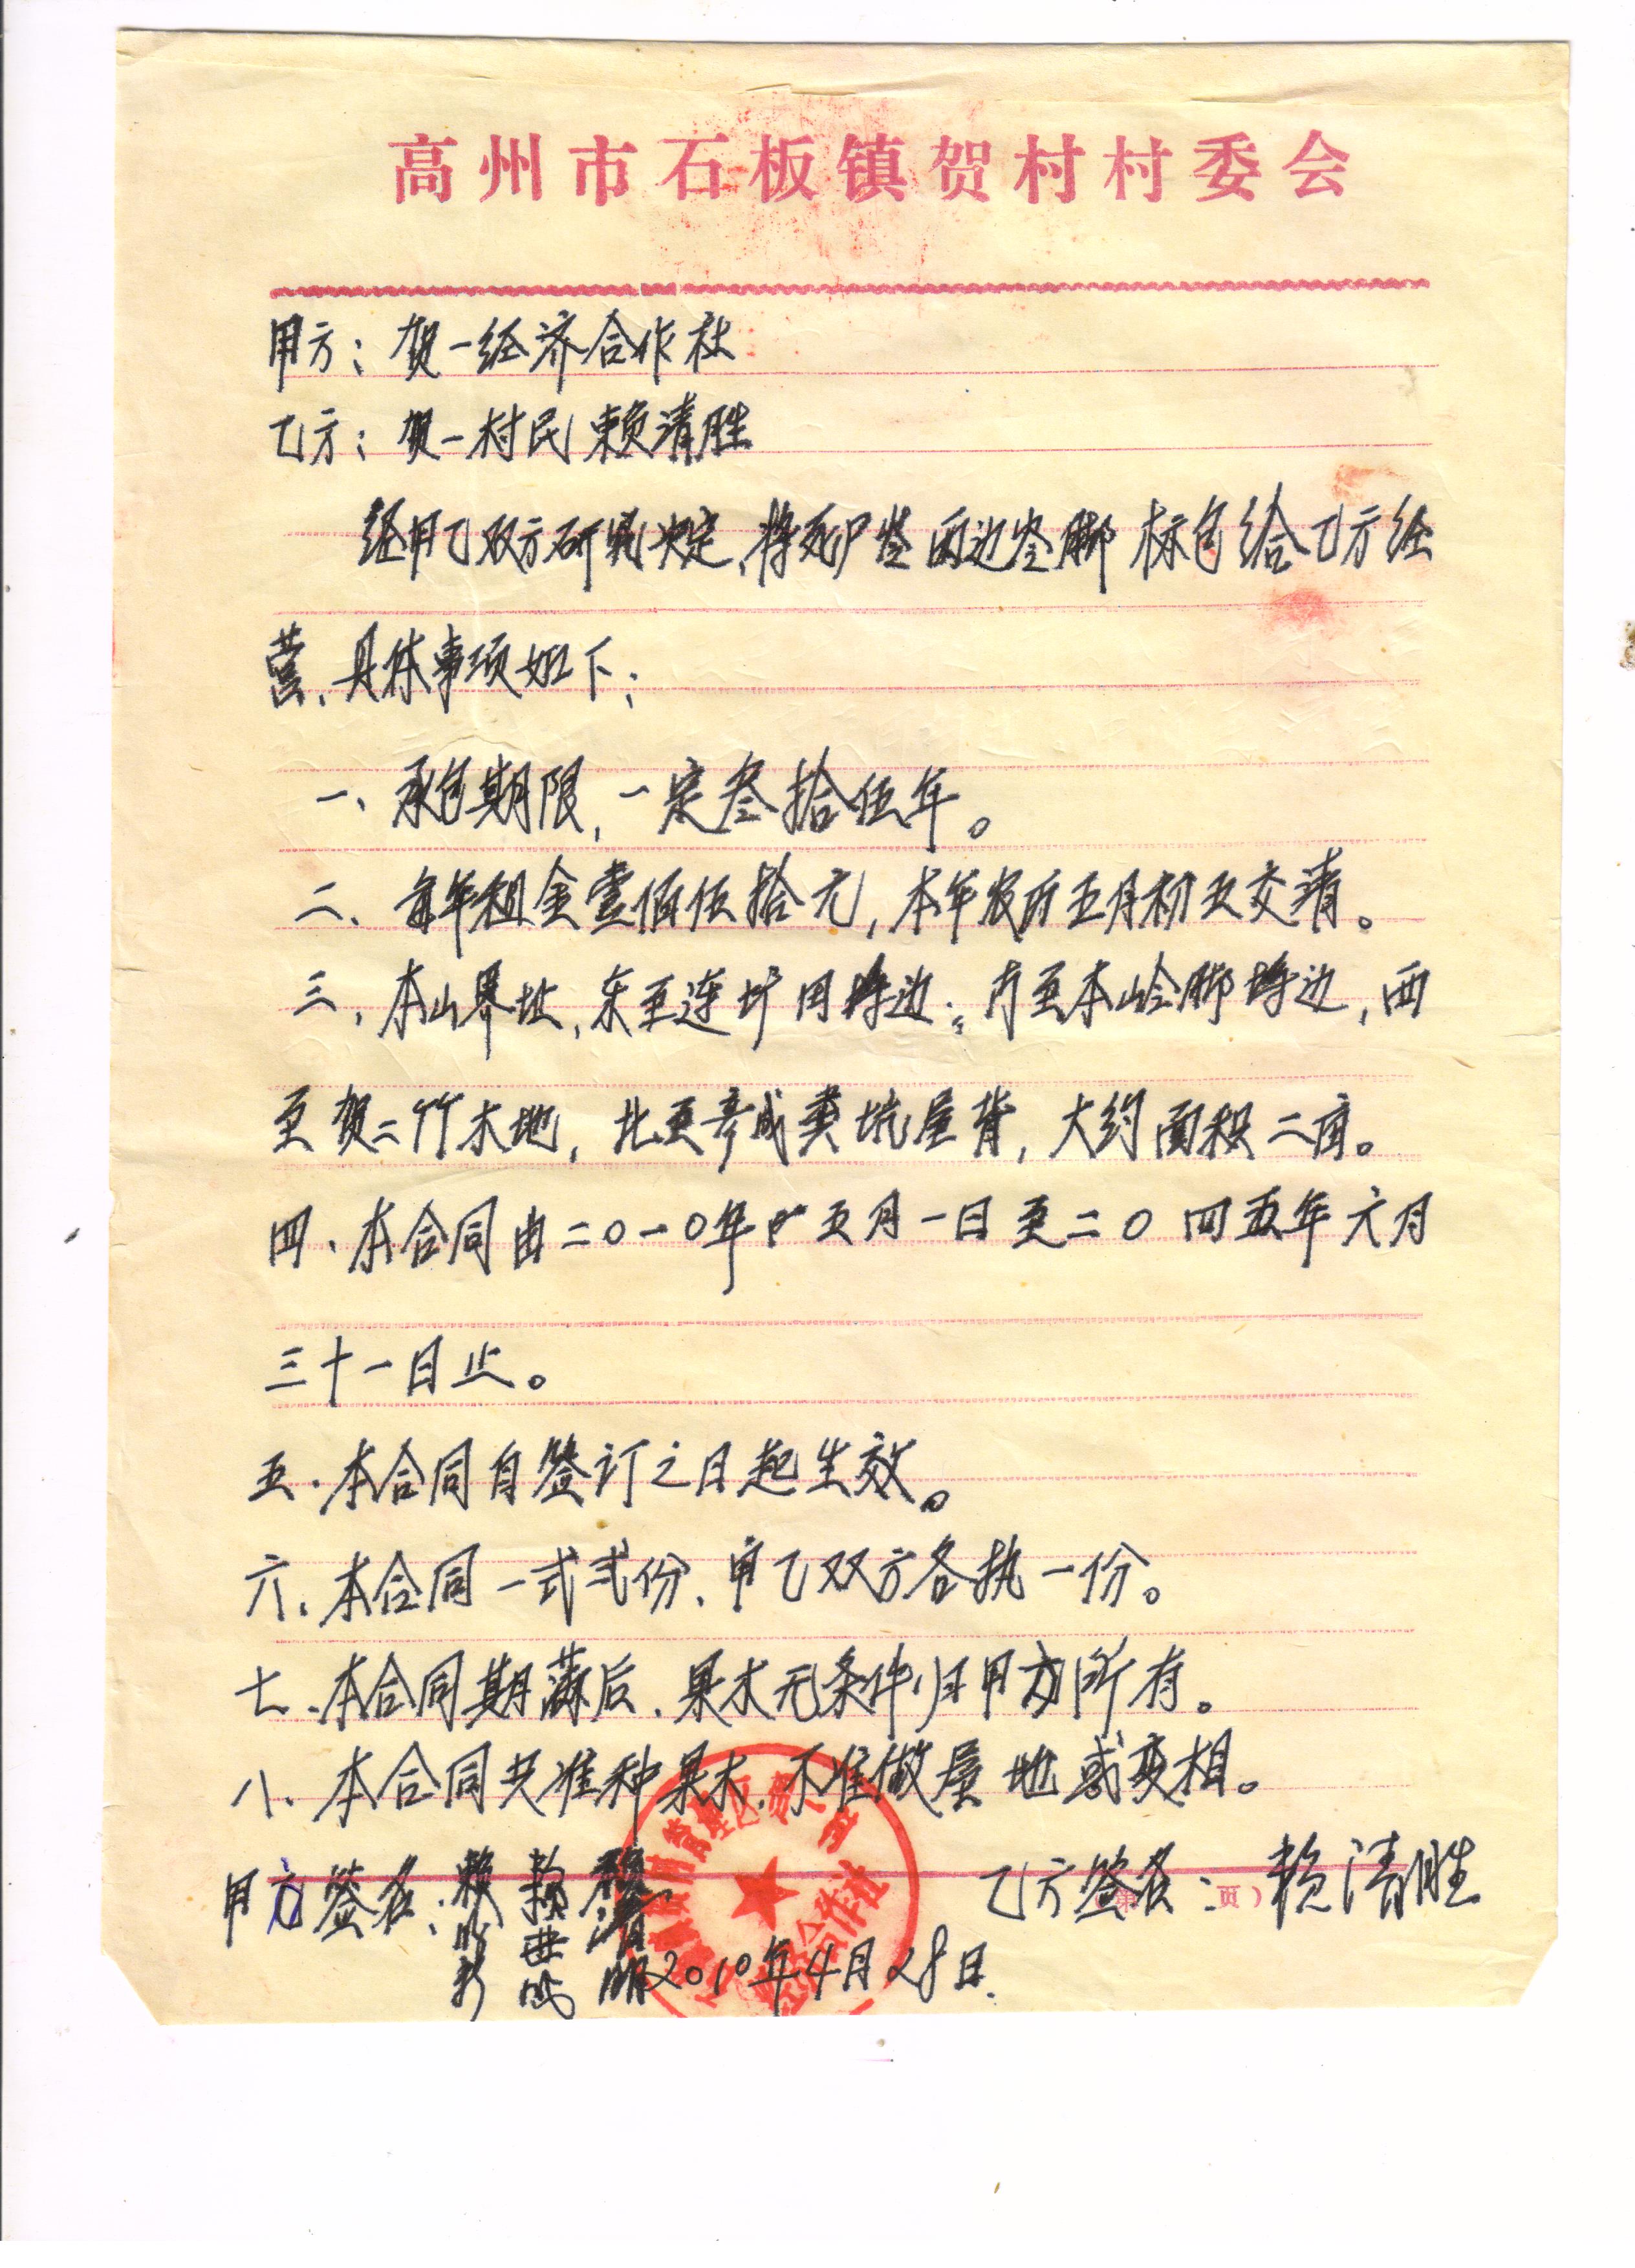 高州市石板镇贺村村委会
甲方：贺一经济合作社
乙方：贺一村民赖清胜
经甲乙双方研究决定，将死尸 两边 脚标包给乙方经
营，具体事项如下：
一、承包期限，一定叁拾伍年。
二、每年租金壹佰伍拾元，本年农历五月初五交清。
三、本山界址，东至连圹田 边；方至本岭脚 边，西
至贺二竹木地，北至彦成粪坑屋背，大约面积二亩。
四、本合同由二〇一〇年 五月一日至二〇四五年六月
三十一日止。
五、本合同自签订之日起生效。
六、本合同一式弍份、甲乙双方各执一份。
七、本合同期满后、果木无条件归甲方所有。
八、本合同只准种果木、不准做屋地或变相。
甲方签名：赖 乙方签名：赖清胜
2010年4月28日.